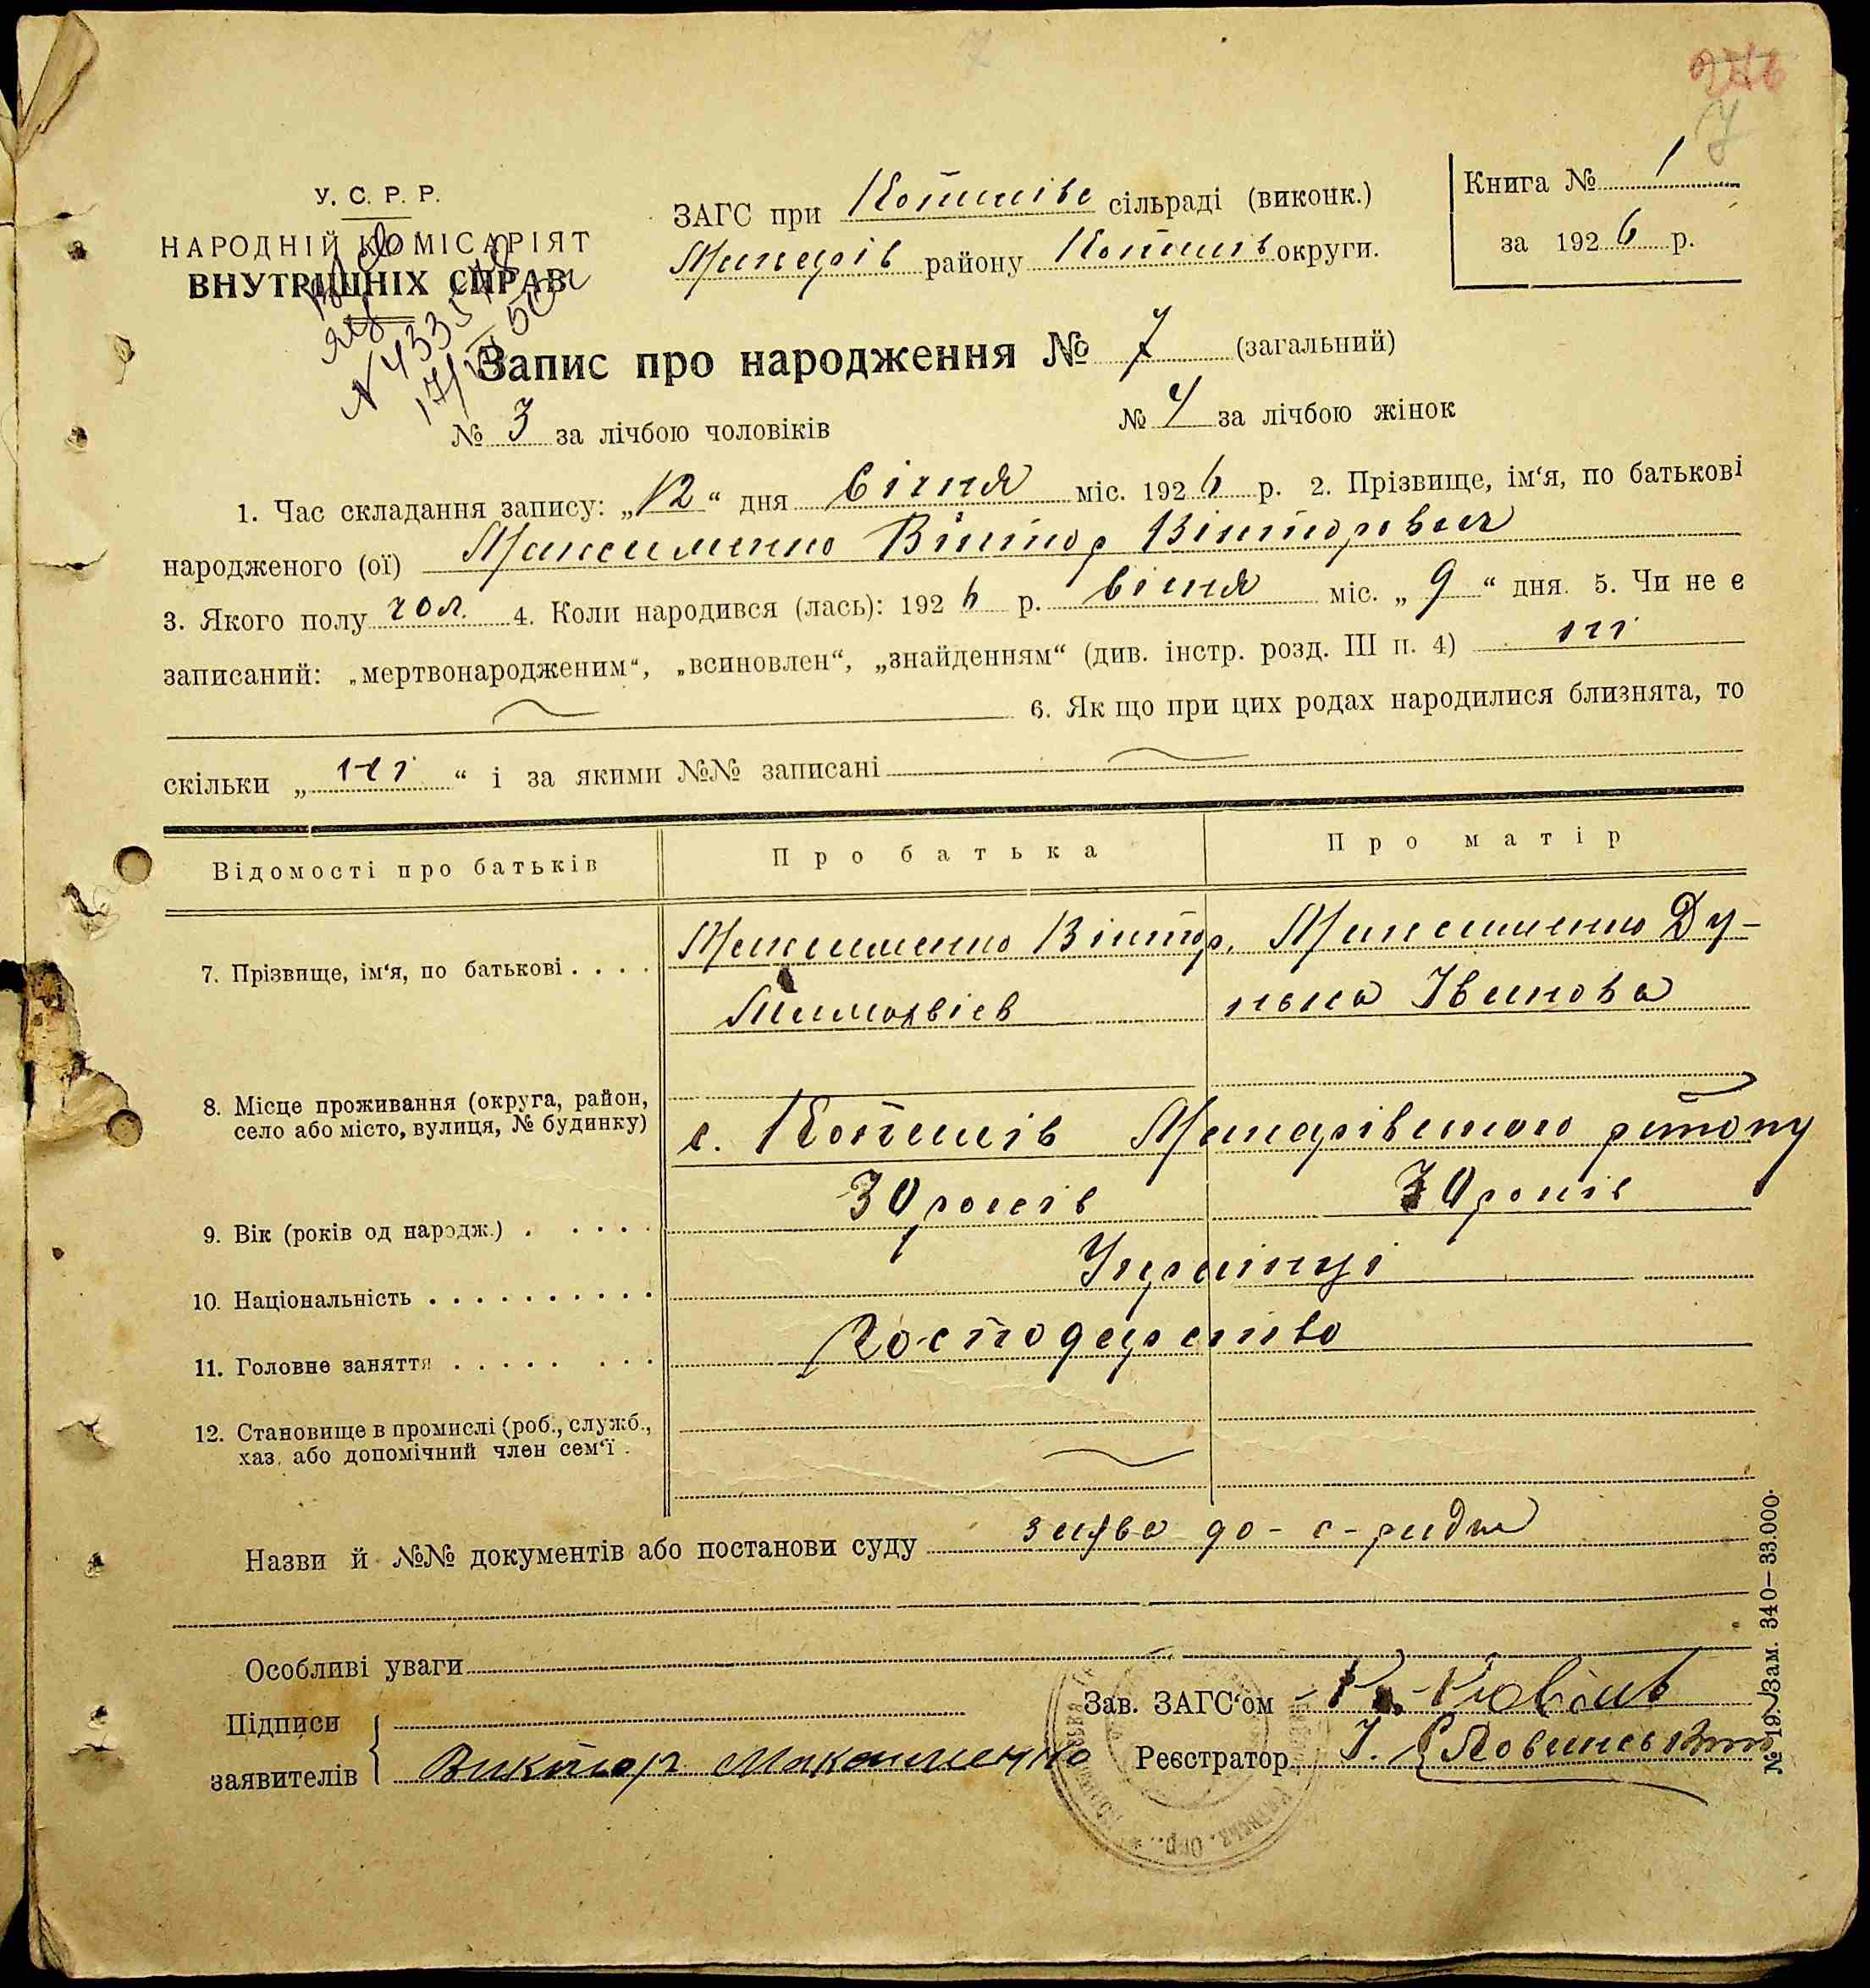 7
246
7
У. С. Р. Р.
НАРОДНІЙ КОМІСАРІЯТ
ВНУТРІШНІХ СПРАВ
ЗАГС при Копилівс сільраді (виконк.)
Макарів району округи.
Книга № 1
за 1926 р.
Запис про народження № 7 (загальний)
№ 3 за лічбою чоловіків № 4 за лічбою жінок
1. Час складання запису: „12“ дня Січня міс. 1926 р. 2. Прізвище, ім‘я, по батькові
народженого (ої) Максименко Віктор Вікторович
3. Якого полу чол. 4. Коли народився (лась): 1926 р. Січня міс. „9“ дня. 5. Чи не є
записаний: „мертвонародженим“, „всиновлен“, „знайденням“ (див. інстр. розд. III п. 4) ні
6. Як що при цих родах народилися близнята, то
скільки „ні“ і за якими №№ записані
Відомості про батьків Про батька Про матір
7. Прізвище, ім‘я, по батькові . . . . Максименко Віктор Максименко Ду-
нька Іванова
8. Місце проживання (округа, район,
село або місто, вулиця, № будинку) с. Копилів Макарівського району
9. Вік (років од народж.) . . . . . 30 років 30 років
10. Національність . . . . . . . . . . Українці
11. Головне заняття . . . . . . . . Господарство
12. Становище в промислі (роб., служб.,
хаз. або допомічний член сем‘ї .
Назви й №№ документів або постанови суду заява до с-ради
Особливі уваги
Підписи
заявителів Виктор Максименко
Зав. ЗАГС‘ом
Реєстратор
№ 19. Зам. 340—33.000.